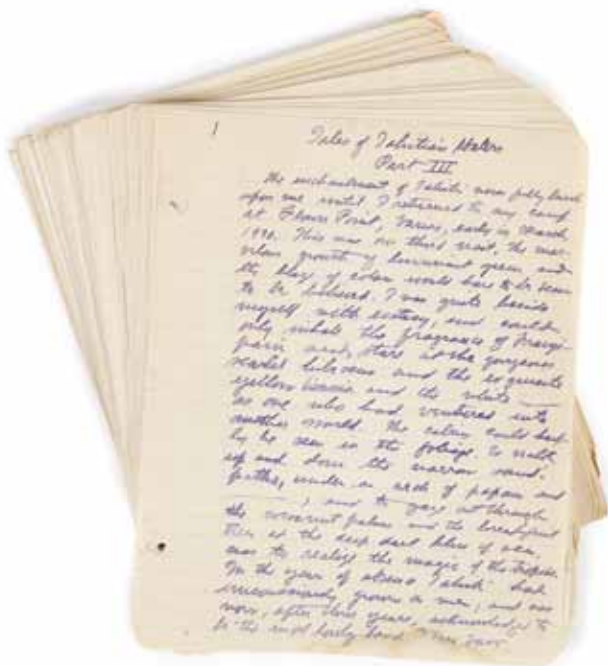 1
Tales of Tahitian Waters
Part III
The enchantment of Tahiti never fully burst
upon me until I returned to my camp
at Flower Point, Vairao, early in March
1930. This was our third visit. The mar-
velous growth of luxuriant green, and
the blaze of color would have to be seen
to be believed. I was quite beside
myself with ecstasy, and could
only inhale the fragrance of frangi-
pani and stare at the gorgeous
scarlet hibiscus and the exquisite
yellow and the white
as one who had ventured into
another world. The cabins could hard-
ly be seen in the foliage. To walk
up and down the narrow sand
paths, under an arch of papaia and
, and to gaze out through
the cocoanut palms and the breadfruit
trees at the deep dark blue of sea,
was to realize the magic of the tropics.
In the year of absence Tahiti had
unconsciously grown on me, and was
now, after three years, acknowledged to
be the most lovely land I ever saw.